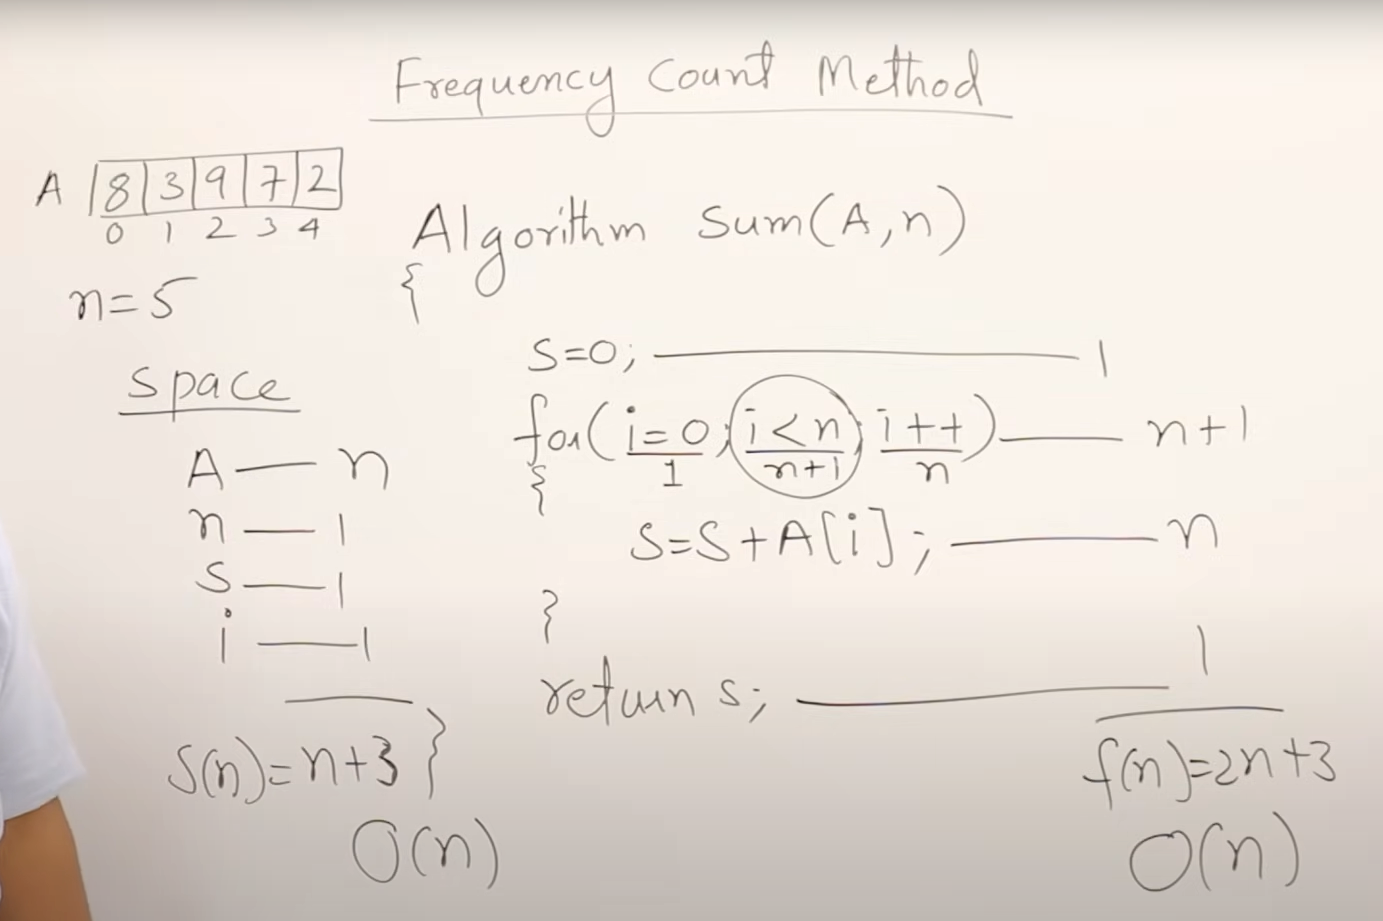 Frequency Count Method
A 8 3 9 7 2
0 1 2 3 4
n=5
Space
A — n
n — 1
S — 1
i — 1
S(n)=n+3
O(n)
Algorithm Sum(A,n)
{
S=0; — 1
for(i=0; i<n; i++) — n+1
1 n+1 n
{
S=S+A[i]; — n
}
return s; — 1
}
f(n)=2n+3
O(n)